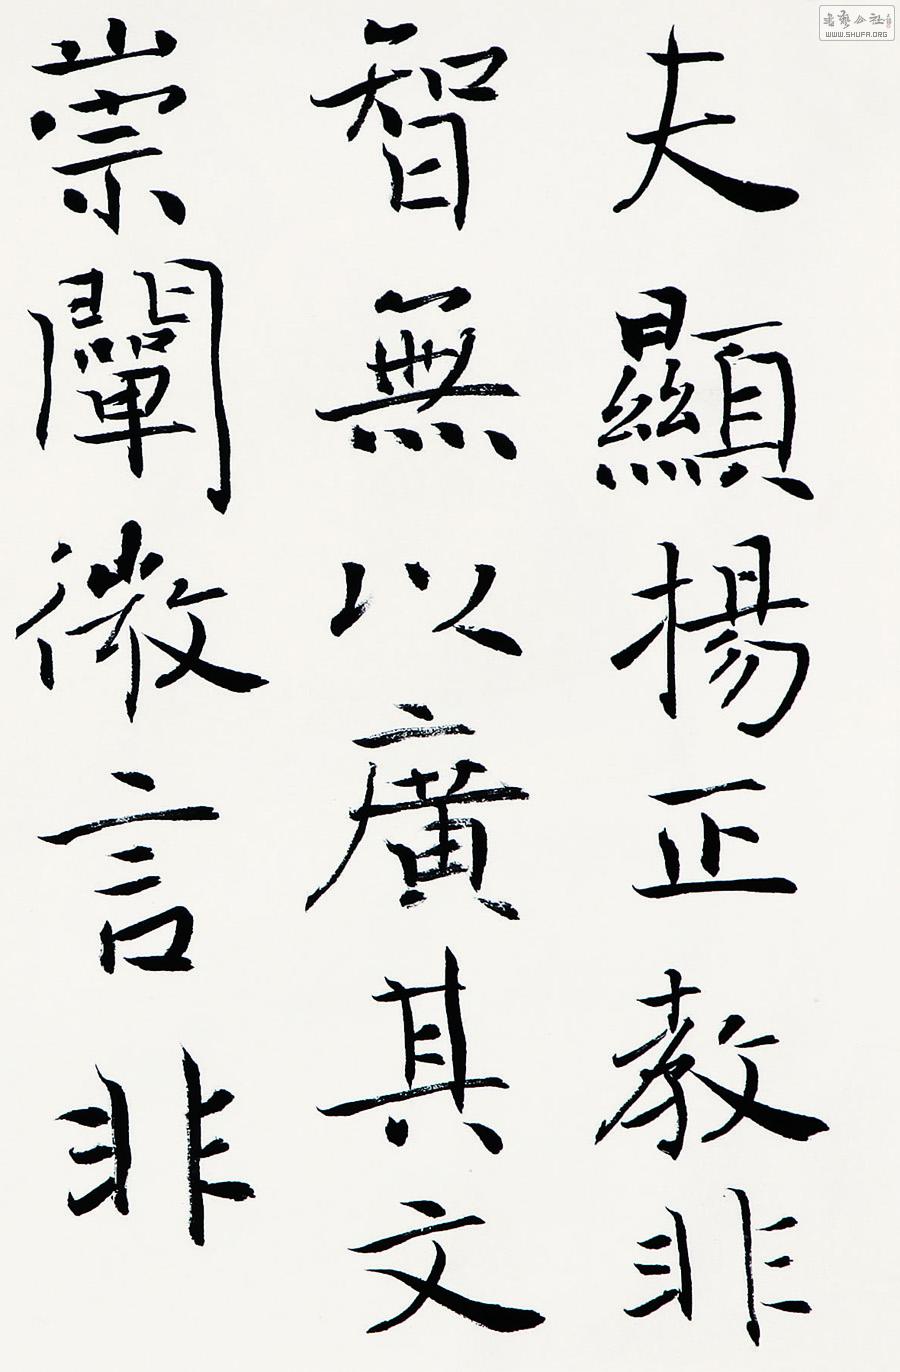 夫顯揚正教非
智無以廣其文
崇闡微言非
書藝公社
WWW.SHUFA.ORG